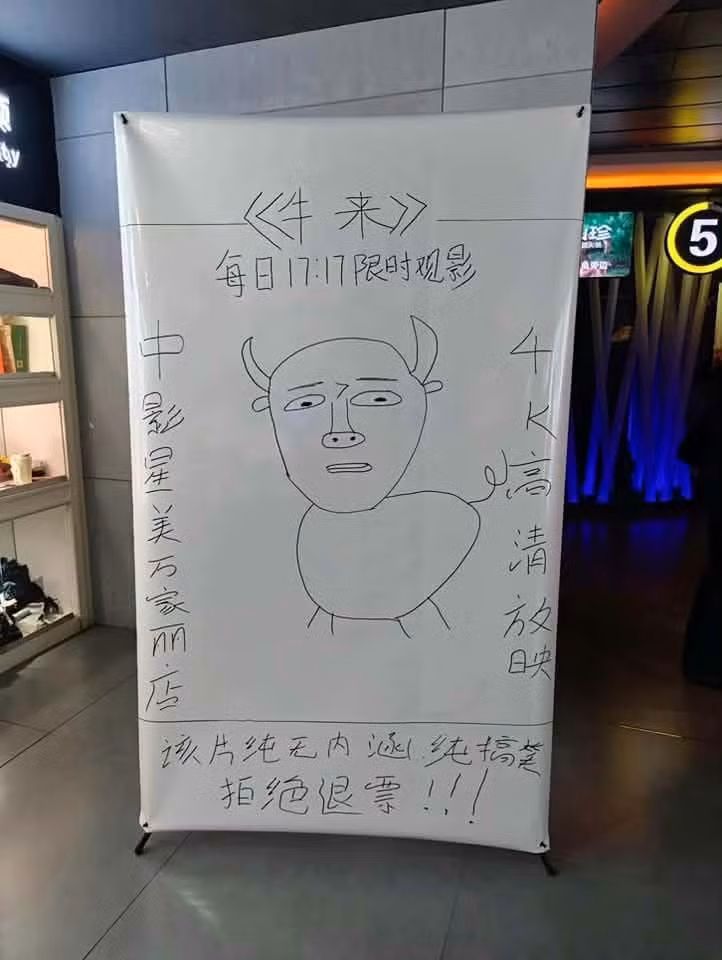 《牛来》
每日17:17限时观影
中影星美万家丽店
4K高清放映
该片纯无内涵纯搞笑
拒绝退票!!!
5